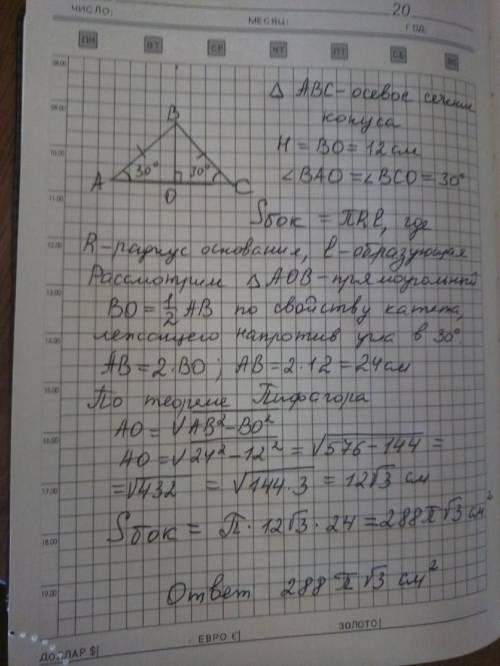 ЧИСЛО:
МЕСЯЦ:
20
ГОД:
ПН ВТ СР ЧТ ПТ СБ ВС
08.00
09.00
10.00
11.00
12.00
13.00
14.00
15.00
16.00
17.00
18.00
19.00
B
30° 30°
A O C
Δ ABC - осевое сечение
конуса
H = BO = 12 см
∠BAO = ∠BCO = 30°
Sбок = πRl, где
R - радиус основания, l - образующая
Рассмотрим Δ AOB - прямоугольный
BO = 1/2 AB по свойству катета,
лежащего напротив угла в 30°.
AB = 2·BO ; AB = 2·12 = 24 см
По теореме Пифагора
AO = √AB² - BO²
AO = √24² - 12² = √576 - 144 =
= √432 = √144·3 = 12√3 см
Sбок = π · 12√3 · 24 = 288π√3 см²
Ответ 288 π √3 см²
ДОЛЛАР $|
ЕВРО €|
ЗОЛОТО|